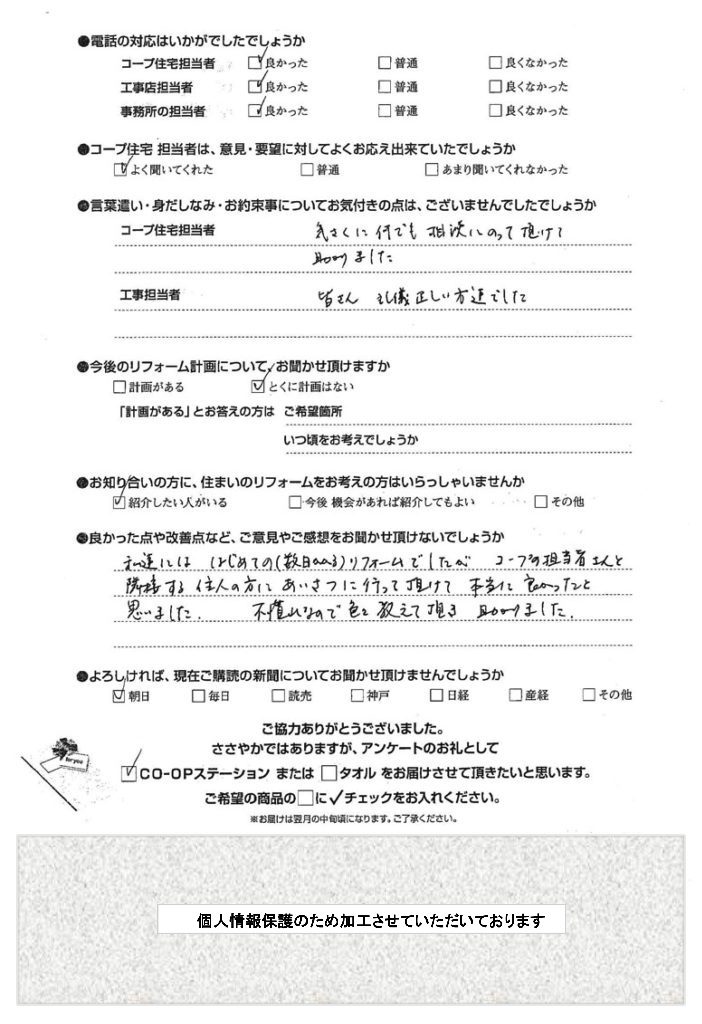 ●電話の対応はいかがでしたでしょうか
コープ住宅担当者 ☑良かった □普通 □良くなかった
工事店担当者 ☑良かった □普通 □良くなかった
事務所の担当者 ☑良かった □普通 □良くなかった
●コープ住宅 担当者は、意見・要望に対してよくお応え出来ていたでしょうか
☑よく聞いてくれた □普通 □あまり聞いてくれなかった
●言葉遣い・身だしなみ・お約束事についてお気付きの点は、ございませんでしたでしょうか
コープ住宅担当者 気さくに何でも相談にのって頂けて
助かりました
工事担当者 皆さん 礼儀正しい方達でした
●今後のリフォーム計画について、お聞かせ頂けますか
□計画がある ☑とくに計画はない
「計画がある」とお答えの方は ご希望箇所
いつ頃をお考えでしょうか
●お知り合いの方に、住まいのリフォームをお考えの方はいらっしゃいませんか
☑紹介したい人がいる □今後 機会があれば紹介してもよい □その他
●良かった点や改善点など、ご意見やご感想をお聞かせ頂けないでしょうか
私達には はじめての(数日かかる)リフォームでしたが コープの担当者さんと
隣接する住人の方にあいさつに行って頂けて 本当に良かったと
思いました. 不慣れなので色々教えて頂き 助かりました.
●よろしければ、現在ご購読の新聞についてお聞かせ頂けませんでしょうか
☑朝日 □毎日 □読売 □神戸 □日経 □産経 □その他
ご協力ありがとうございました。
ささやかではありますが、アンケートのお礼として
for you
☑CO-OPステーション または □タオル をお届けさせて頂きたいと思います。
ご希望の商品の□に✓チェックをお入れください。
※お届けは翌月の中旬頃になります。ご了承ください。
個人情報保護のため加工させていただいております